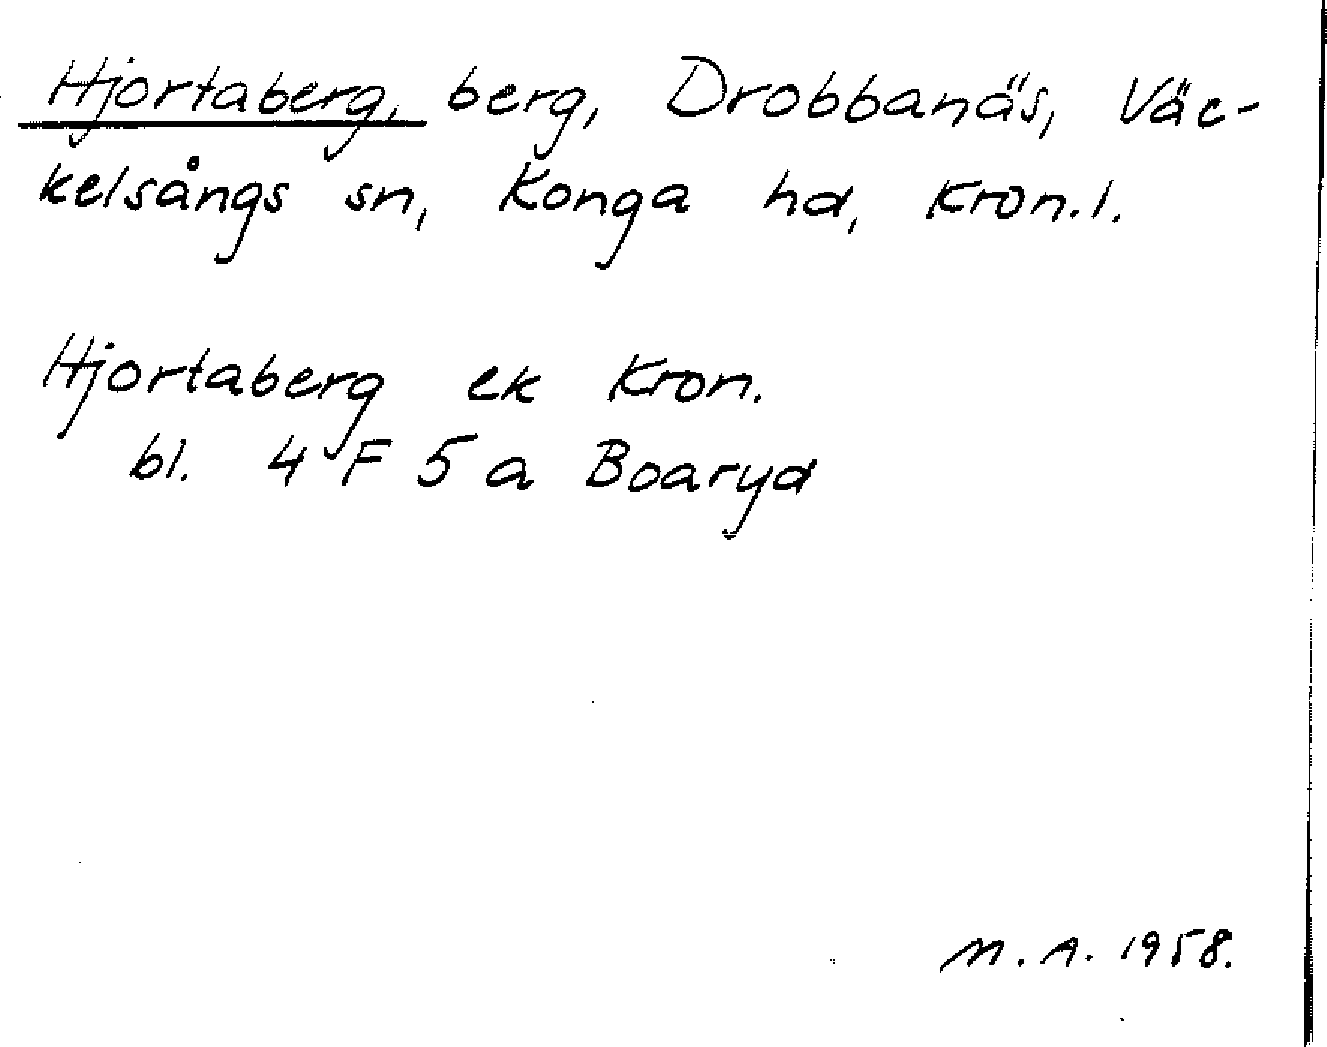 Hjortaberg, berg, Drobbanäs, Väc-
kelsångs sn, Konga hd, Kron.l.
Hjortaberg ek Kron.
bl. 4 F 5 a Boaryd
M.A. 1958.